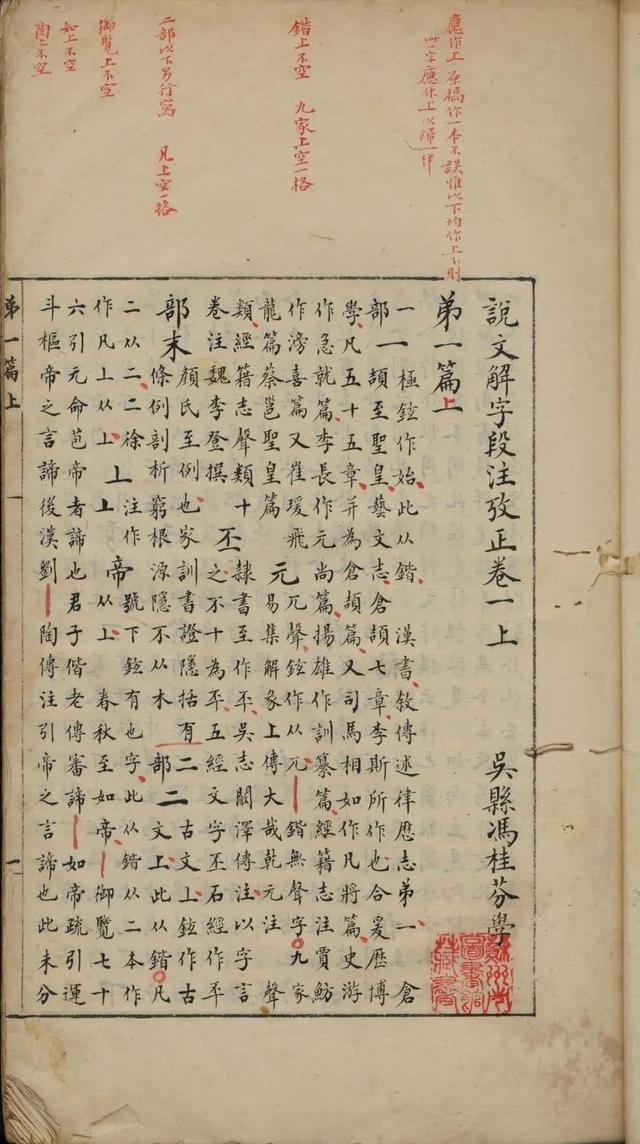 應作上 原稿作一本不誤惟以下均作上不則
此字應作上以歸一律
鍇上不空 九家上空一格
二部以下另行寫 凡上空一格
御覽上不空
如上不空
陶上不空
說文解字段注攷正卷一上 吳縣馮桂芬學
弟一篇上
一 一 極鉉作始此从鍇 漢書敘傳述律厯志弟一 倉
部 頡至聖皇藝文志倉頡七章李斯所作也合爰歷博
學凡五十五章并為倉頡篇又司馬相如作凡將篇史游
作急就篇李長作元尚篇揚雄作訓纂篇經籍志注賈魴
作滂喜篇又崔瑗飛 元 兀聲鉉作从兀 鍇無聲字 九家
龍篇蔡邕聖皇篇 易集解彖上傳大哉乾元注 聲
類經籍志聲類十 丕 隸書至作平吳志闞澤傳注以字言
卷注魏李登撰 之不十為丕五經文字丕石經作平
部末 顏氏至例也家訓書證隱括有 二 古文上鉉作古
條例剖析窮根源隱不从木 部二 文上此从鍇 凡
二从二二徐 丄 注作號下鉉有也字此从鍇从二本作
作凡上从上 帝 从上 春秋至如帝 御覽七十
六引元命苞帝者諦也君子偕老傳審諦 如帝疏引運
斗樞帝之言諦後漢劉 陶傳注引帝之言諦也此未分
弟一篇上 一
蘇州市圖書館藏書